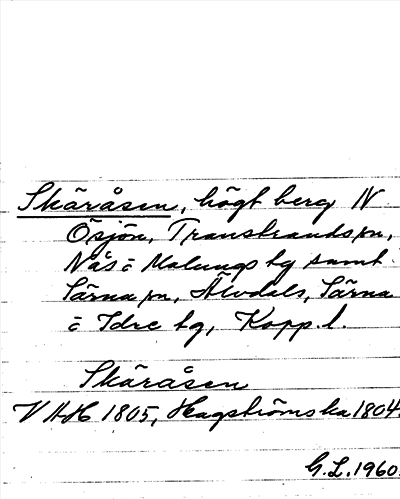 Skäråsen, högt berg N
Ösjön, Transtrands sn,
Nås o Malungs tg samt
Särna sn, Älvdals, Särna
o Idre tg, Kopp. l.
Skäråsen
V HH 1805, Hagströmska 1804.
G.L. 1960.